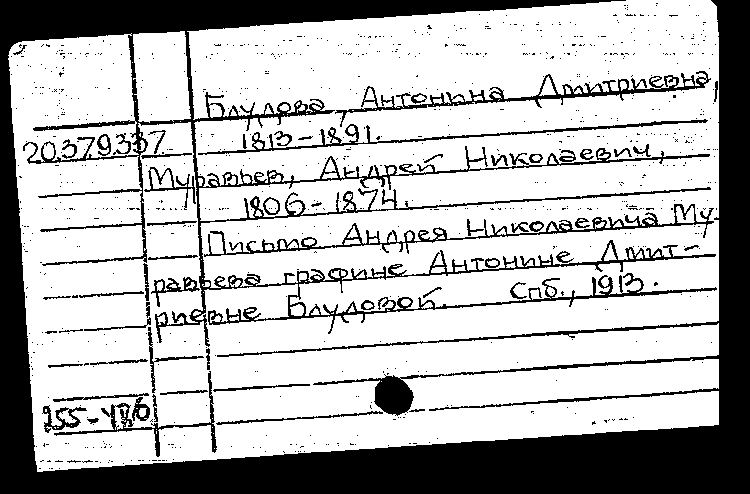 Блудова, Антонина Дмитриевна,
20.379.337 1813-1891.
Муравьев, Андрей Николаевич,
1806-1874.
Письмо Андрея Николаевича Му-
равьева графине Антонине Дмит-
риевне Блудовой. Спб., 1913.